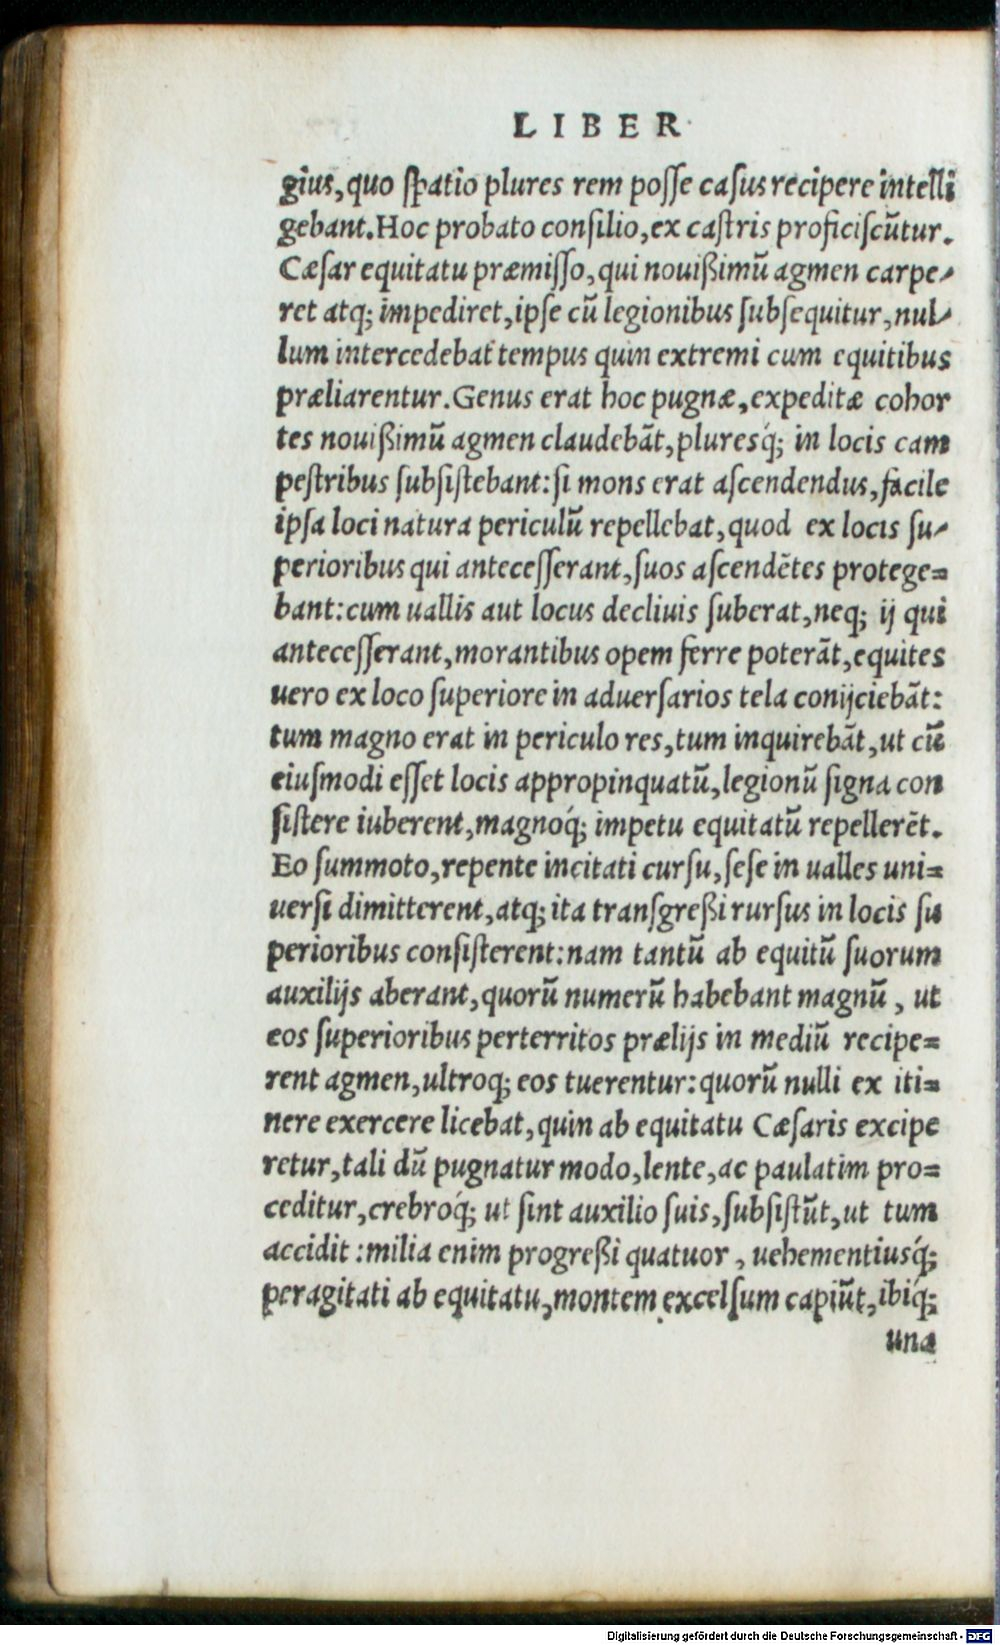 LIBER
gius, quo spatio plures rem posse casus recipere intelli
gebant. Hoc probato consilio, ex castris proficiscūtur.
Cæsar equitatu præmisso, qui nouißimū agmen carpe-
ret atq; impediret, ipse cū legionibus subsequitur, nul-
lum intercedebat tempus quin extremi cum equitibus
præliarentur. Genus erat hoc pugnæ, expeditæ cohor
tes nouißimū agmen claudebāt, pluresq́; in locis cam
pestribus subsistebant: si mons erat ascendendus, facile
ipsa loci natura periculū repellebat, quod ex locis su-
perioribus qui antecesserant, suos ascendētes protege=
bant: cum uallis aut locus decliuis suberat, neq; ij qui
antecesserant, morantibus opem ferre poterāt, equites
uero ex loco superiore in aduersarios tela conijciebāt:
tum magno erat in periculo res, tum inquirebāt, ut cū
eiusmodi esset locis appropinquatū, legionū signa con
sistere iuberent, magnoq́; impetu equitatū repellerēt.
Eo summoto, repente incitati cursu, sese in ualles uni=
uersi dimitterent, atq; ita transgreßi rursus in locis su
perioribus consisterent: nam tantū ab equitū suorum
auxilijs aberant, quorū numerū habebant magnū, ut
eos superioribus perterritos prælijs in mediū recipe=
rent agmen, ultroq; eos tuerentur: quorū nulli ex iti=
nere exercere licebat, quin ab equitatu Cæsaris excipe
retur, tali dū pugnatur modo, lente, ac paulatim pro=
ceditur, crebroq́; ut sint auxilio suis, subsistūt, ut tum
accidit: milia enim progreßi quatuor, uehementiusq́;
peragitati ab equitatu, montem excelsum capiūt, ibiq́;
una
Digitalisierung gefördert durch die Deutsche Forschungsgemeinschaft - DFG